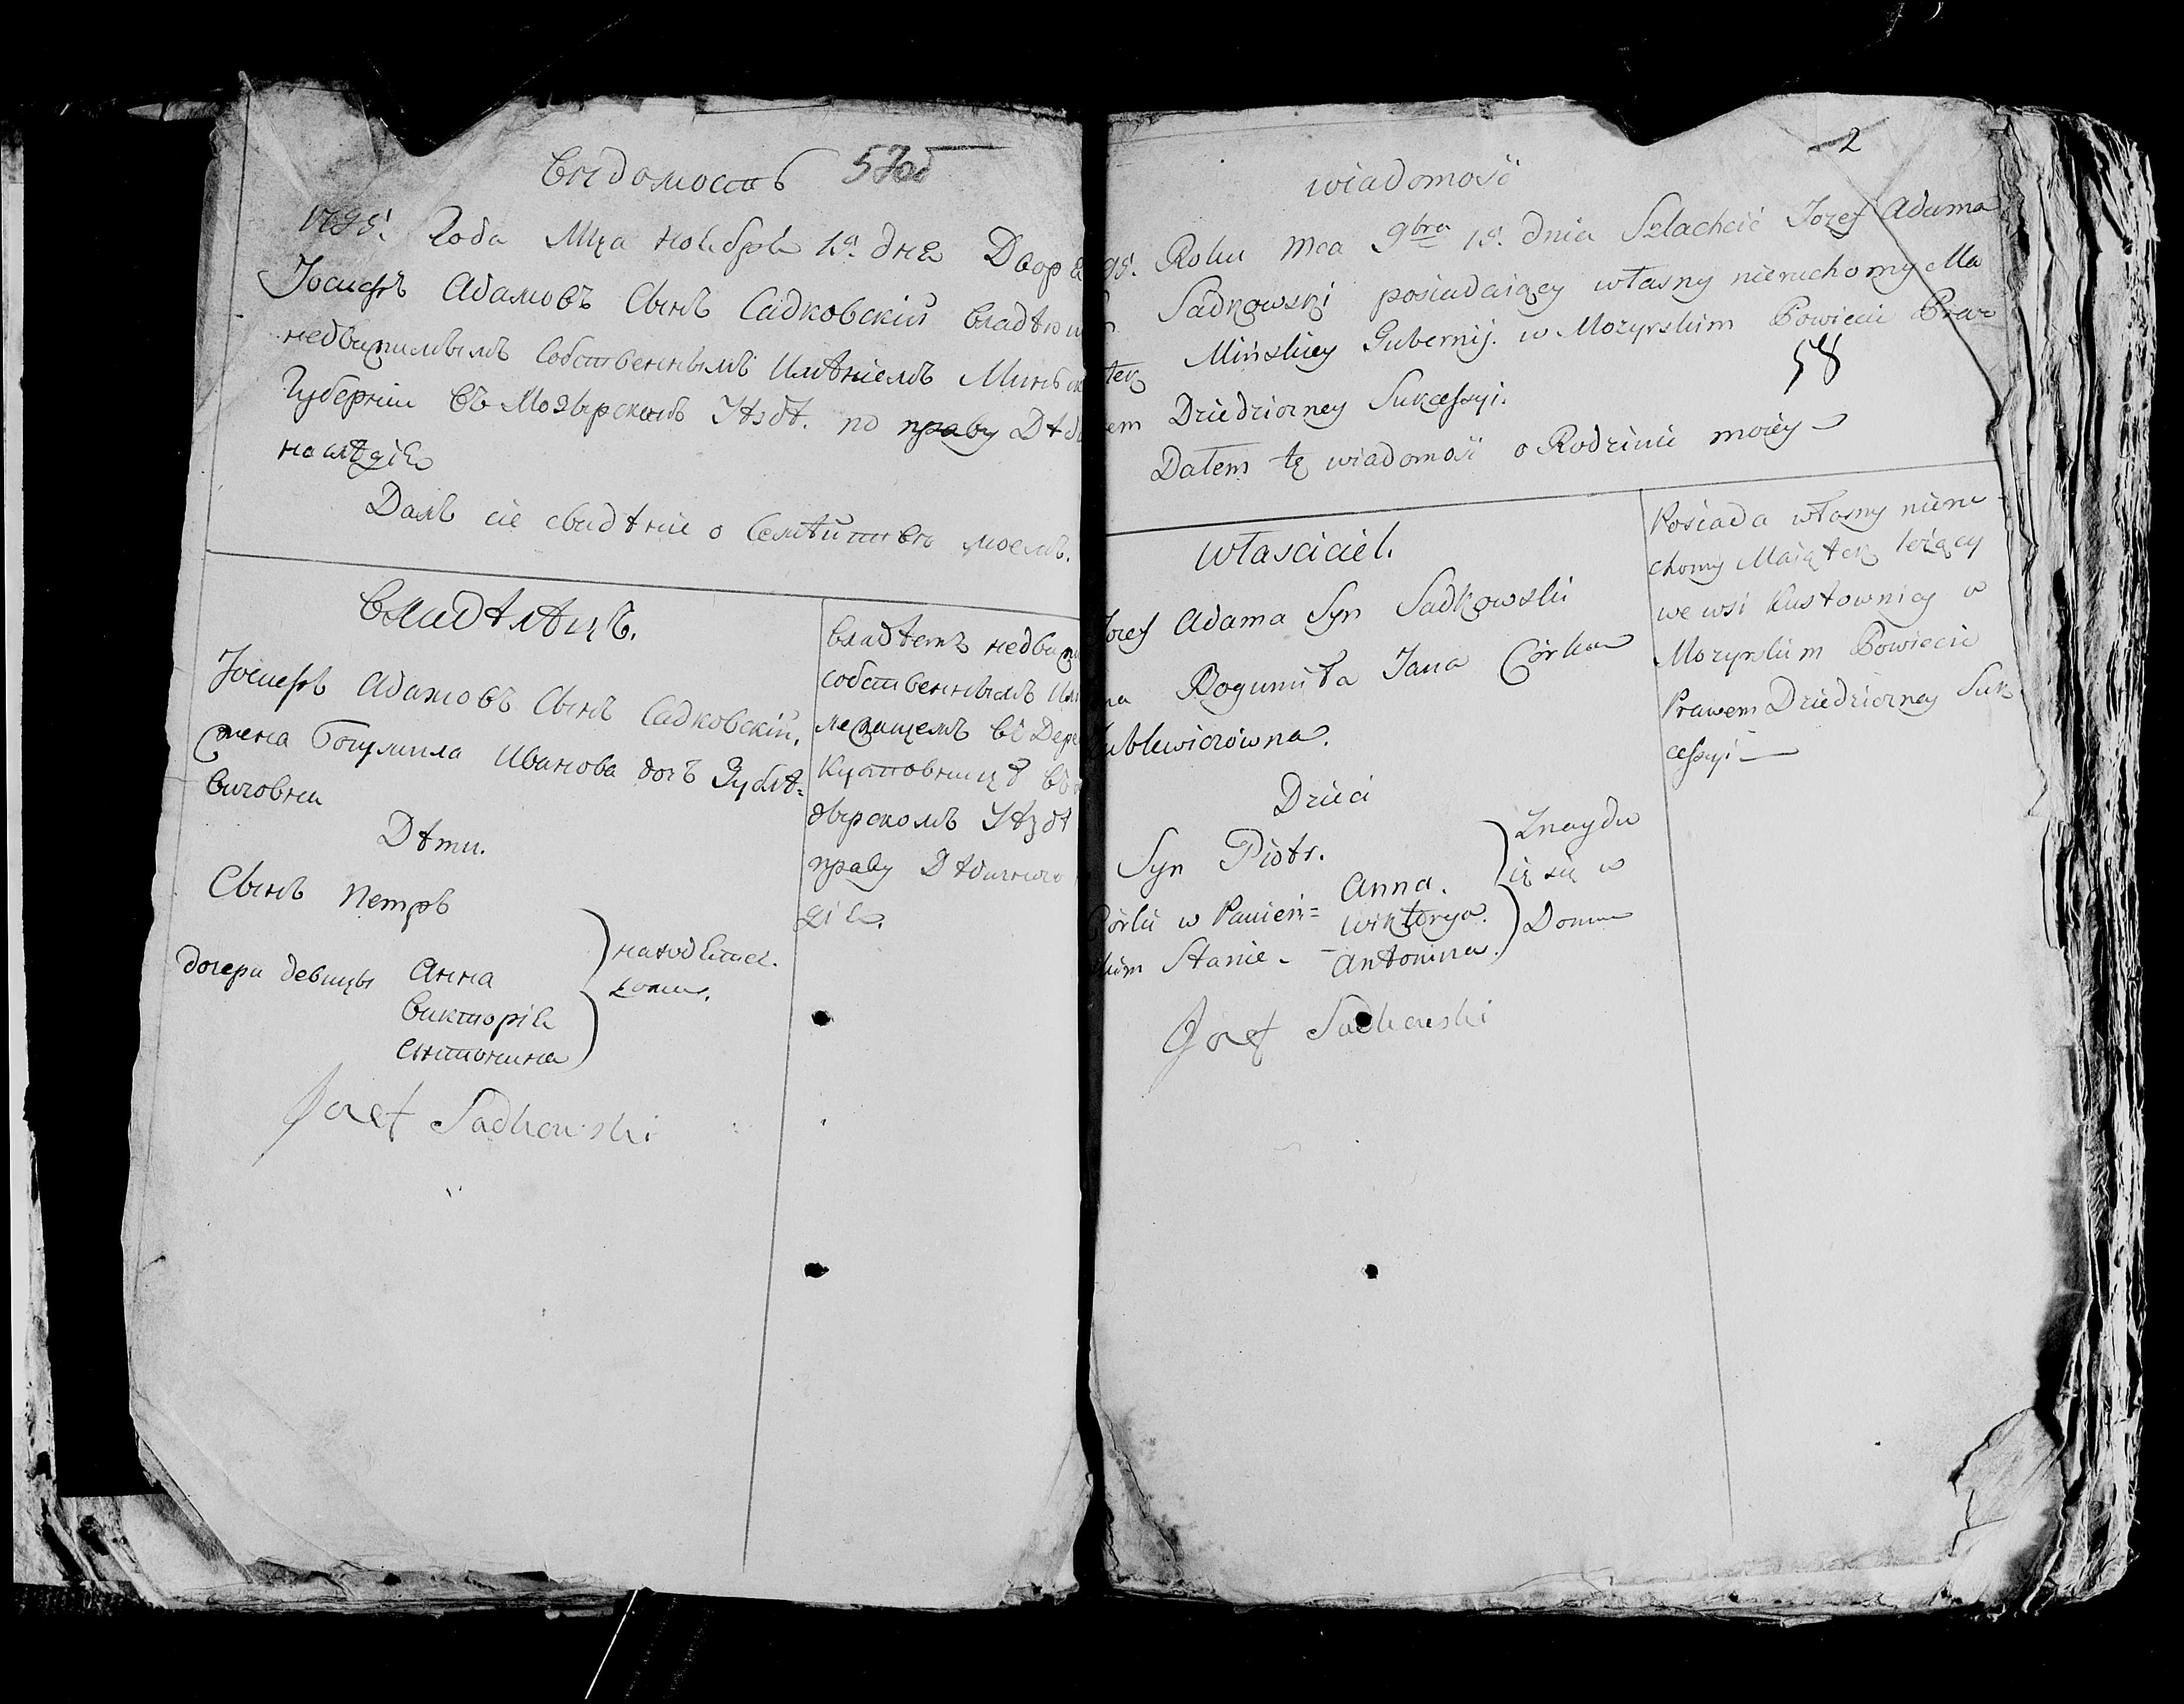 Вѣдомость 57об
1795. Года Мца ноября 15. дня Дворя
Іосифъ Адамовъ Сынъ Садковскій владѣю
недвижимымъ собственнымъ имѣніемъ Минск
Губерніи въ Мозырскомъ Уѣздѣ. по праву Дѣди
наслѣдія
Далъ сіе свидѣніе о семѣйствѣ моемъ.
владѣлецъ.
Іосифъ Адамовъ Сынъ Садковскій,
жена Богумила Иванова дочъ Зублѣ=
вичовна
Дѣти.
Сынъ Петръ
дочери девицы Анна
Викторія
Антонина
находятся
дома.
владѣетъ недвижи
собственнымъ им
лежащемъ въ Дере
Кустовницѣ въ
зырскомъ Уѣздѣ
праву Дѣдичнаго
дія.
Jozef Sadkowski
2
wiadomość
95. Roku Mca 9bra 15. dnia Szlachcic Jozef Adama
Sadkowski posiadaiący własny nieruchomy Ma
tek Mińskiey Gubernij. w Mozyrskim Powiecie Praw
58
em Dziedziczney Sukcessyi.
Dałem tę wiadomość o Rodzinie moiey
Własciciel.
ozef Adama Syn Sadkowski
na Bogumiła Jana Córka
ublewiczówna.
Dzieci
Syn Piotr.
Córki w Panień= Anna.
skim Stanie - Wiktorya.
Antonina.
Znaydu
ią się w
Domu
Posiada własny nieru
chomy Maiątek leżący
we wsi Kustownicy w
Mozyrskim Powiecie
Prawem Dziedziczney Suk
cessyi
Jozef Sadkowski